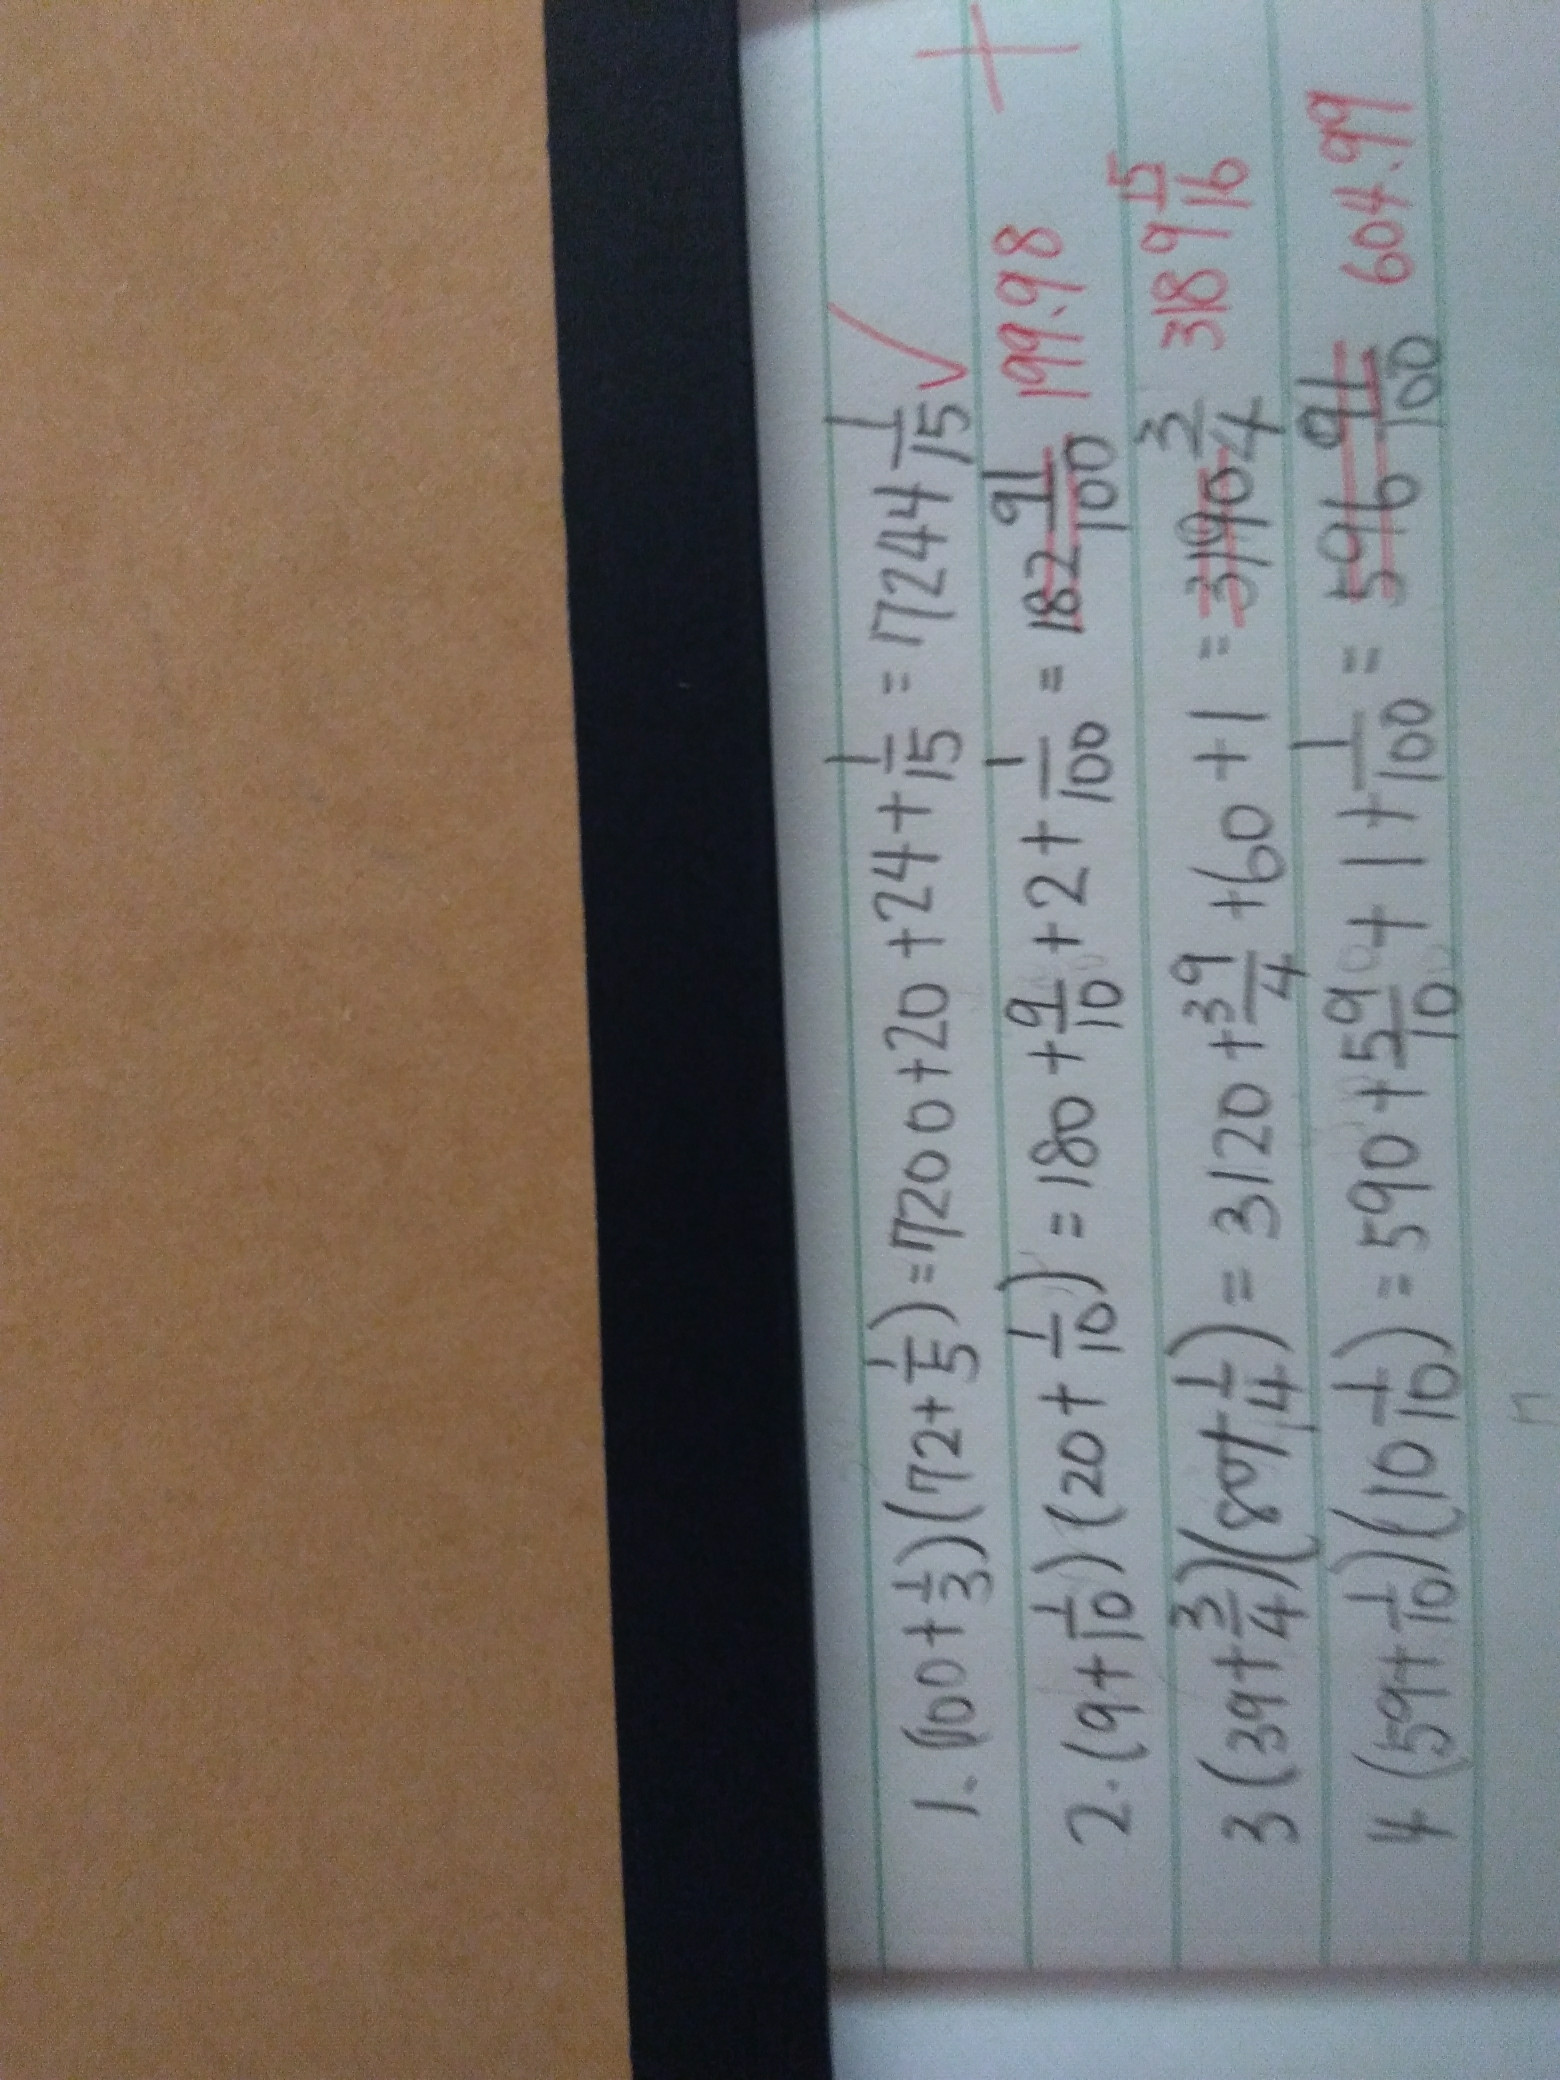 1. (100+1/3)(72+1/5)=7200+20+24+1/15=7244 1/15 ✓
2. (9+1/10)(20+1/10)=180+9/10+2+1/100=182 91/100 199.98
3 (39+3/4)(80+1/4)=3120+39/4+60+1=3190 3/4 3189 15/16
4 (59+1/10)(10 1/10)=590+59/10+1+1/100=596 91/100 604.99